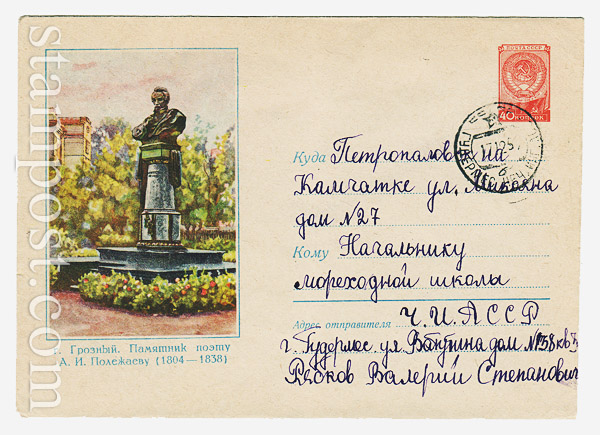 ПОЧТА СССР
40 КОПЕЕК
Куда Петропалов на
Камчатке ул.
дом №27
Кому Начальнику
мореходной школы
Адрес отправителя Ч.И.АССР
г. Гудермес ул. дом №58 кв
Валерий Степанович
г. Грозный. Памятник поэту
А. И. Полежаеву (1804—1838)
stampost.com